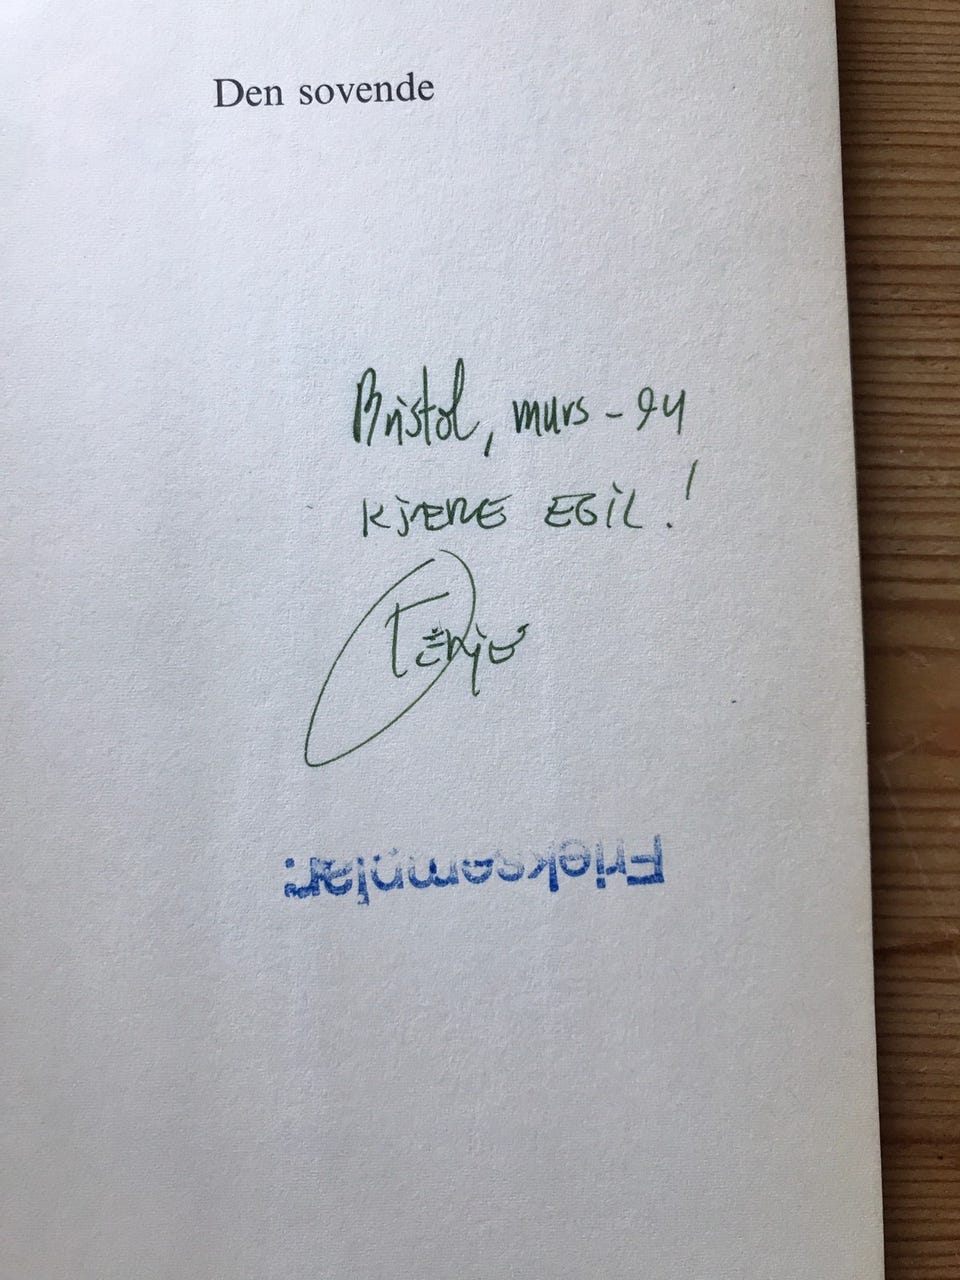 Den sovende
Bristol, mars - 94
KJÆRE EGIL!
Terje
Frieksemplar: